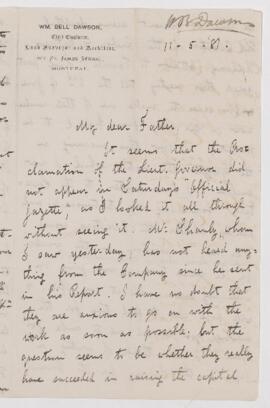 WM. BELL DAWSON,
Civil Engineer,
Land Surveyor and Architect,
ST. JAMES STREET,
MONTREAL.
W B Dawson
11-5-81.
My dear Father,
It seems that the Pro-
clamation of the Lieut. Governor did
not appear in Saturday's "Official
Gazette," as I looked it all through
without seeing it. Mr. Shanly, whom
I saw yester-day, has not heard any-
thing from the Company since he sent
in his Report. I have no doubt that
they are anxious to go on with the
work as soon as possible, but the
question seems to be whether they really
have succeeded in raising the capital